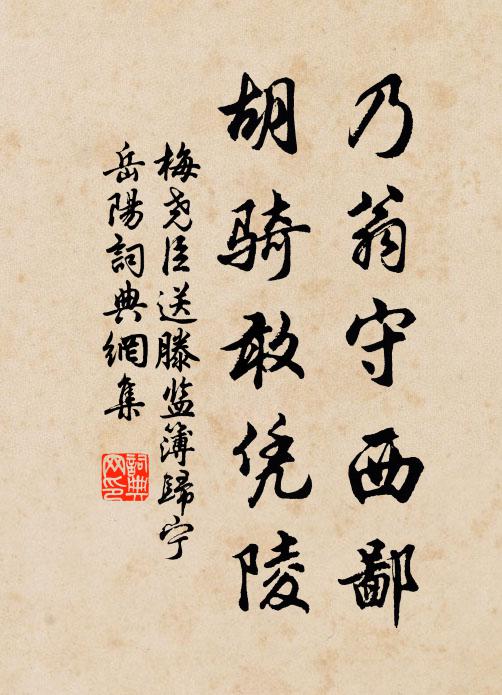 乃翁守西鄙
胡骑敢凭陵
梅尧臣送滕监簿歸宁
岳陽詞典網集
詞典网印